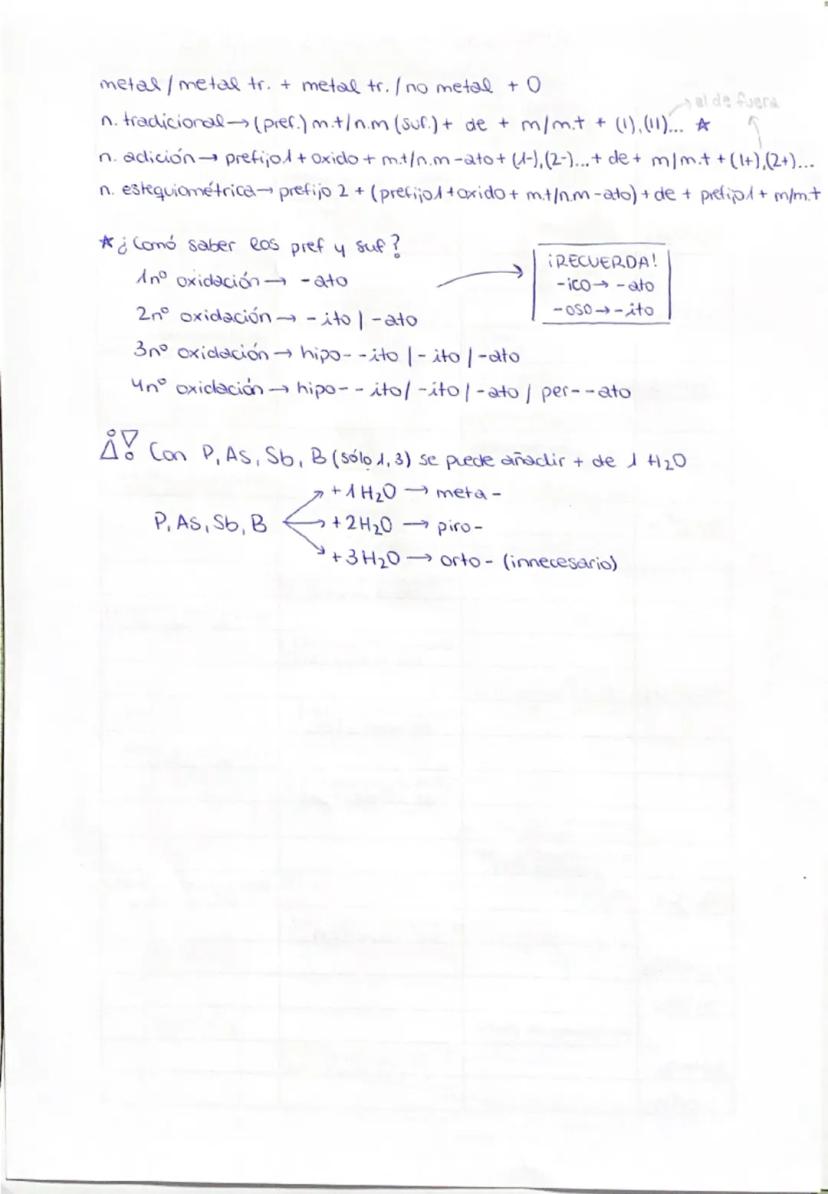 metal/metal tr. + metal tr./no metal + O
→ al de fuera
n. tradicional → (pref.) m.t/n.m (suf.) + de + m/m.t + (I), (II)... ☆
n. adición → prefijo1 + oxido + m.t/n.m -ato + (1-), (2-)... + de + m/m.t + (1+), (2+)...
n. estequiométrica → prefijo 2 + (prefijo1 + oxido + m.t/n.m - ato) + de + prefijo1 + m/m.t
☆ ¿Comó saber los pref y suf?
1nº oxidación → -ato
2nº oxidación → -ito | -ato
3nº oxidación → hipo- -ito | -ito | -ato
4nº oxidación → hipo- -ito/ -ito | -ato | per- -ato
¡RECUERDA!
-ico → -ato
-oso → -ito
¡! Con P, As, Sb, B (sólo 1, 3) se puede añadir + de 1 H₂O
P, As, Sb, B
→ +1H₂O → meta-
→ +2H₂O → piro-
→ +3H₂O → orto- (innecesario)